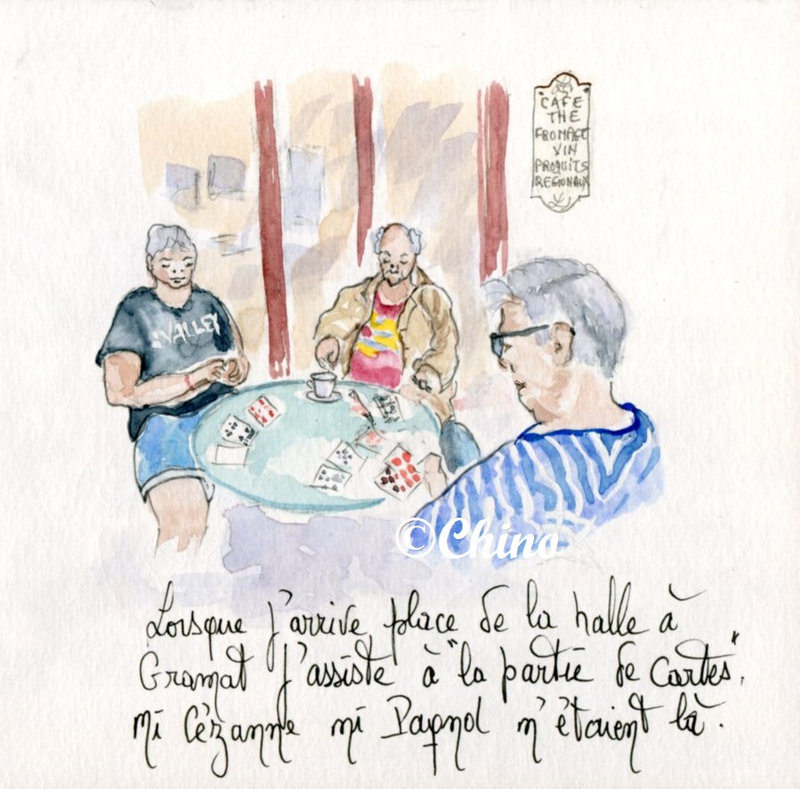 CAFE
THE
FROMAGE
VIN
PRODUITS
REGIONAUX
VALLEY
©China
Lorsque j'arrive, place de la halle à
Gramat j'assiste à "la partie de cartes",
ni Cézanne ni Pagnol n'étaient là.